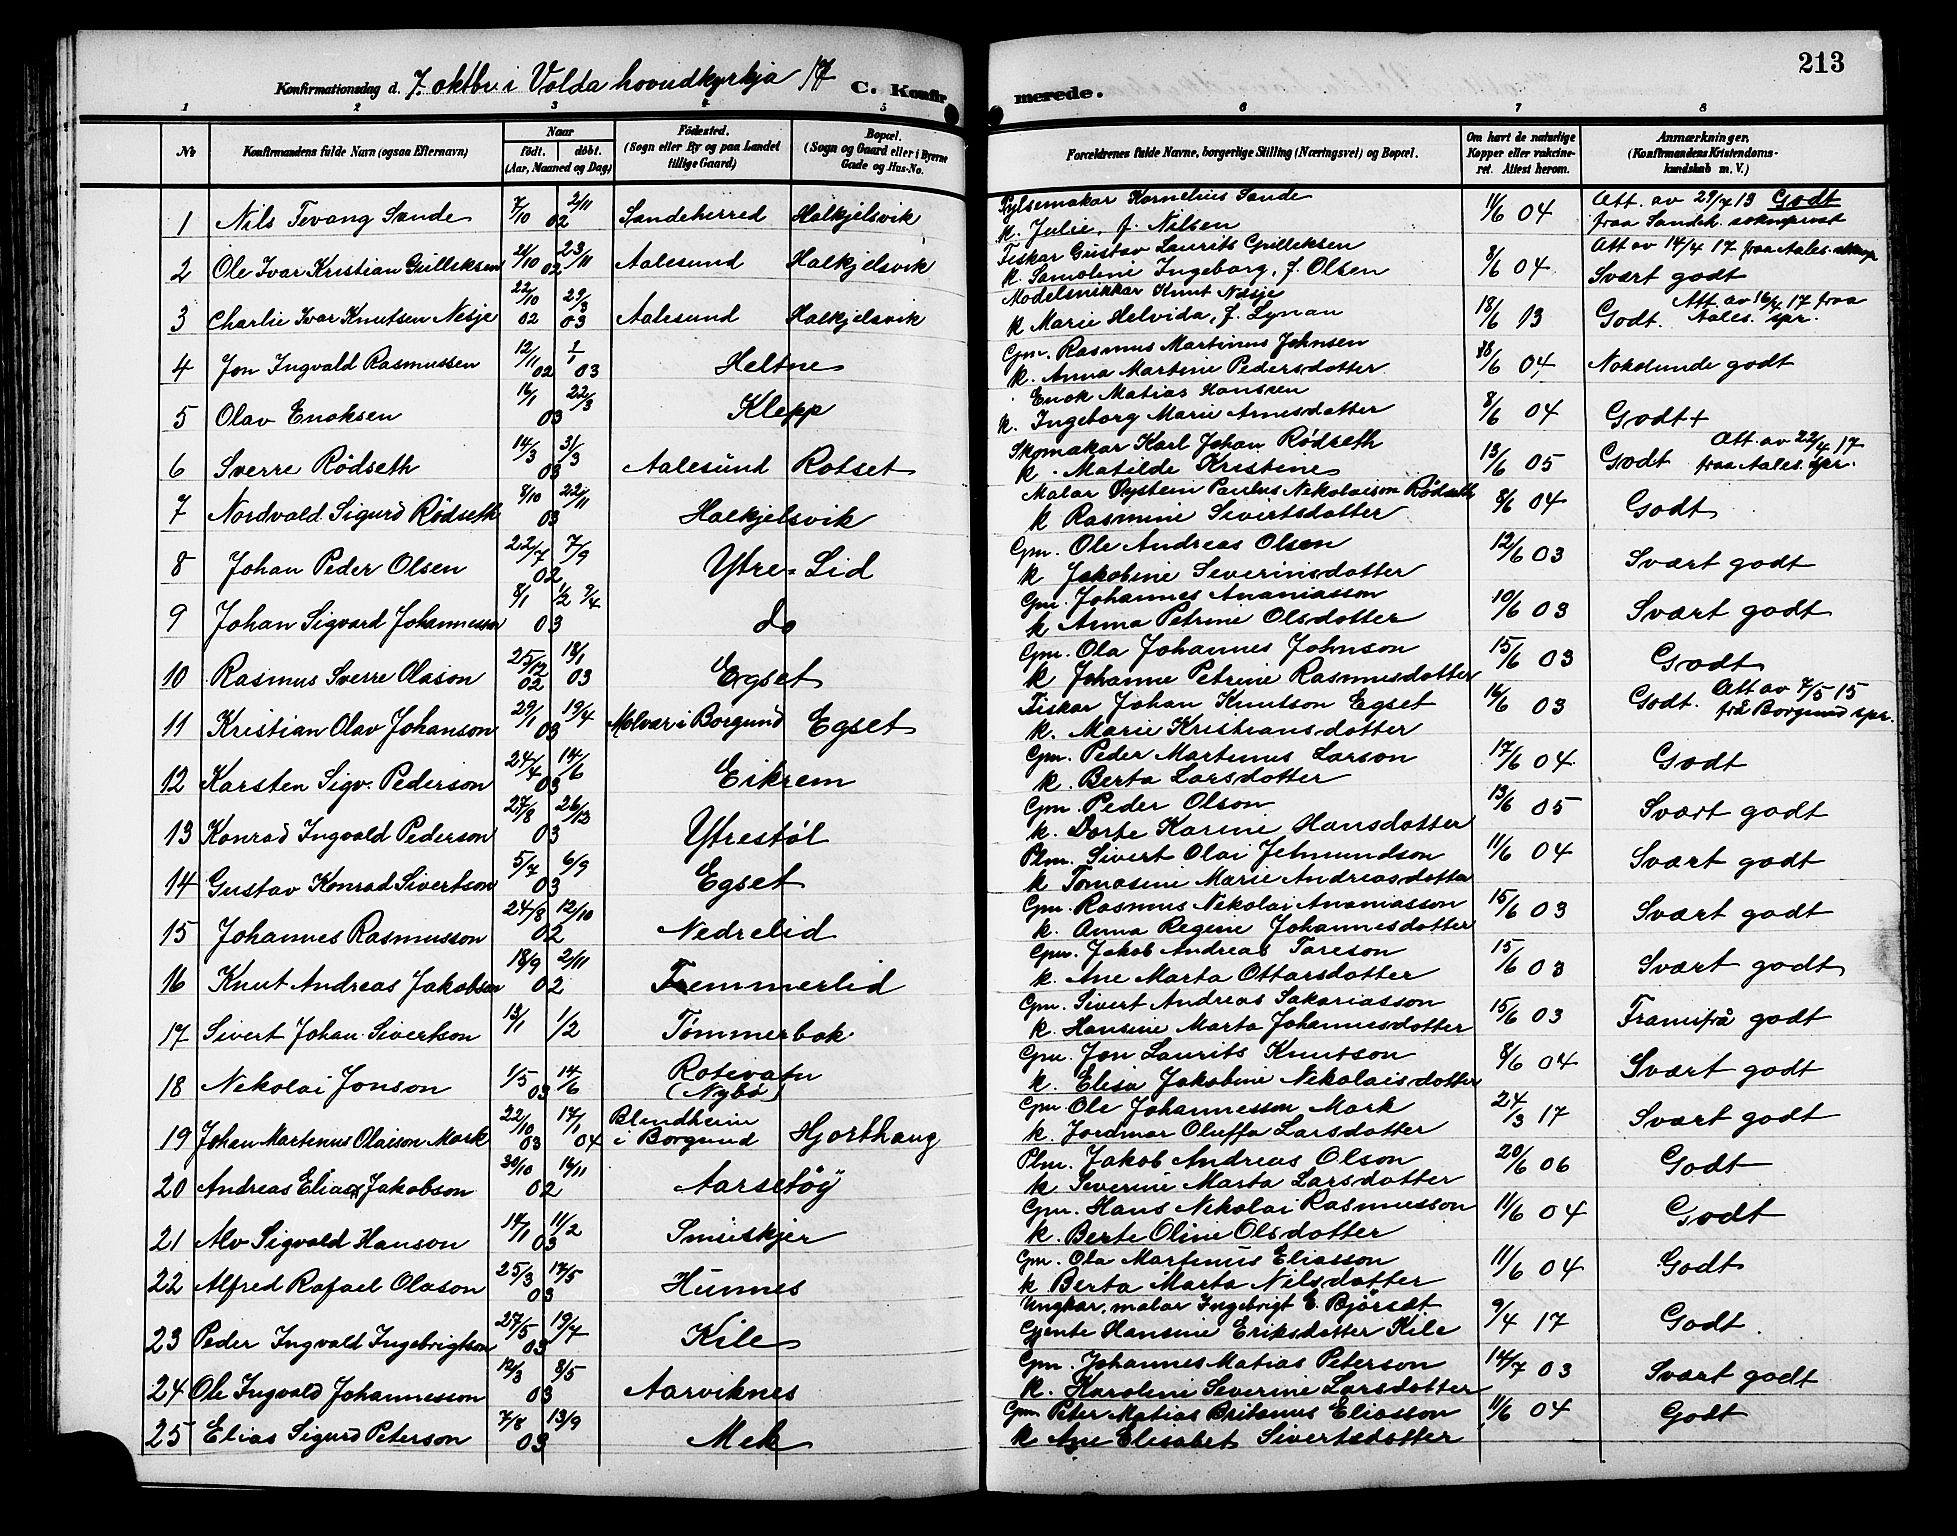 213
Konfirmationsdag d. 7. oktbr i Volda hovudkyrkja 17 C. Konfirmerede.
1 2 3 4 5 6 7 8
No Konfirmandens fulde Navn (ogsaa Efternavn) Naar født. døbt. (Aar, Maaned og Dag) Fødested. (Sogn eller By og paa Landet tillige Gaard) Bopæl. (Sogn og Gaard eller i Byerne Gade og Hus-No. Forældrenes fulde Navne, borgerlige Stilling (Næringsvei) og Bopæl. Om havt de naturlige Kopper eller vakcineret. Attest herom. Anmærkninger, (Konfirmandens Kristendomskundskab m. V.)
1 Nils Tevang Sande 7/10 02 2/11 Sandeherred Halkjelsvik Kornelius Sande k. Julie, f. Nilsen 11/6 04 Att. av 29/4 13 Godt fraa Sandeh. sokneprest
2 Ole Ivar Kristian Gulliksen 21/10 02 23/11 Aalesund Halkjelsvik Fiskar Gustav Laurits Gulliksen k. Samoline Ingeborg, f. Olsen 8/6 04 Att av 14/4 17 fraa Aales. Svært godt
3 Charlie Ivar Knutsen Nesje 22/10 02 29/3 03 Aalesund Halkjelsvik Modelsnikkar Knut Nesje k Marie Helvida, f. Lynan 18/6 13 Godt. Att. av 16/4 17 fraa Aales. spr.
4 Jon Ingvald Rasmussen 12/11 02 1/1 03 Heltne Gm. Rasmus Martinus Johnsen k. Anna Martine Pedersdotter 8/6 04 Nokolunde godt
5 Olav Enoksen 16/1 03 22/3 Klepp Enok Matias Hanssen k. Ingeborg Marie Arnesdotter 8/6 04 Godt+
6 Sverre Rödseth 14/3 03 31/3 Aalesund Rotset Skomakar Karl Johan Rödseth k. Matilde Kristine 13/6 05 Godt Att. av 22/4 17 fraa Aales. spr.
7 Nordvald Sigurd Rödseth 8/10 03 22/11 Halkjelsvik Malar Öystein Paulus Nikolaison Rödseth k Rasmine Sivertsdotter 8/6 04 Godt
8 Johan Peder Olsen 22/7 02 7/9 Ytre-Lid Gm. Ole Andreas Olsen k Jakobine Severinsdotter 12/6 03 Svært godt
9 Johan Sigvard Johannesson 8/1 03 1/2 9/4 do Gm. Johannes Ananiasson k Anna Petrine Olsdotter 10/6 03 Svært godt
10 Rasmus Sverre Olason 25/12 02 18/1 03 Egset Gm. Ola Johannes Johnson k Johanne Petrine Rasmusdotter 15/6 03 Godt
11 Kristian Olav Johanson 29/1 03 19/4 Molvær i Borgund Egset Fiskar Johan Knutson Egset k. Marie Kristiansdotter 16/6 03 Godt. Att av 7/5 15 frå Borgund spr.
12 Karsten Sigv. Pederson 24/4 03 14/6 Eikrem Gm. Peder Martinus Larson k. Berta Larsdotter 17/6 04 Godt
13 Konrad Ingvald Pederson 27/8 03 26/12 Ytrestöl Gm. Peder Olson k. Dorte Karine Hansdotter 13/6 05 Svært godt
14 Gustav Konrad Sivertson 5/7 03 6/9 Egset Plm. Sivert Olai Jetmundson k Tomasine Marie Andreasdotter 11/6 04 Svært godt
15 Johannes Rasmusson 24/8 02 12/10 Nedrelid Gm. Rasmus Nikolai Ananiasson k. Anna Regine Johannesdotter 15/6 03 Svært godt
16 Knut Andreas Jakobson 18/9 02 2/11 Fremmerlid Gm. Jakob Andreas Tareson k. Ane Marta Ottarsdotter 15/6 03 Svært godt
17 Sivert Johan Sivertson 13/1 1/2 Tömmerbak Gm. Sivert Andreas Sakariasson k. Hansine Marta Johannesdotter 15/6 03 Framifrå godt
18 Nikolai Jonson 1/5 03 14/6 Rotevatn (Nybö) Gm. Jon Laurits Knutson k. Elisa Jakobine Nikolaisdotter 8/6 04 Svært godt
19 Johan Martenus Olaison Mork 22/10 03 17/1 04 Blendheim i Borgund Hjorthaug Gm Ole Johannesson Mork k. Jordmor Oluffa Larsdotter 24/3 17 Svært godt
20 Andreas Elias Jakobson 30/10 02 16/11 Aarsetöy Plm. Jakob Andreas Olson k Severine Marta Larsdotter 20/6 06 Godt
21 Alv Sigvald Hanson 14/1 03 11/2 Smiskjer Gm. Hans Nikolai Rasmusson k. Berte Oline Olsdotter 11/6 04 Godt
22 Alfred Rafael Olason 25/3 03 17/5 Hunnes Gm. Ola Martinus Eliasson k Berta Marta Nilsdotter 11/6 04 Godt
23 Peder Ingvald Ingebrigtson 27/5 03 19/7 Kile Ungkar, malar Ingebrigt E. Björset Gjente Hansine Eriksdotter Kile 9/4 17 Godt.
24 Ole Ingvald Johannesson 12/3 03 8/5 Aarviknes Gm. Johannes Matias Peterson k. Karoline Severine Larsdotter 14/7 03 Svært godt
25 Elias Sigurd Peterson 7/8 03 13/9 Mek Gm Peter Matias Britanus Eliasson k Ane Elisabet Sivertsdotter 11/6 04 Godt